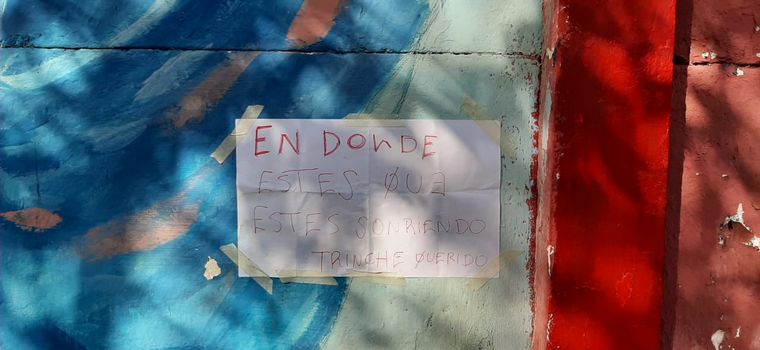 EN DONDE
ESTES QUE
ESTES SONRIENDO
TRINCHE QUERIDO